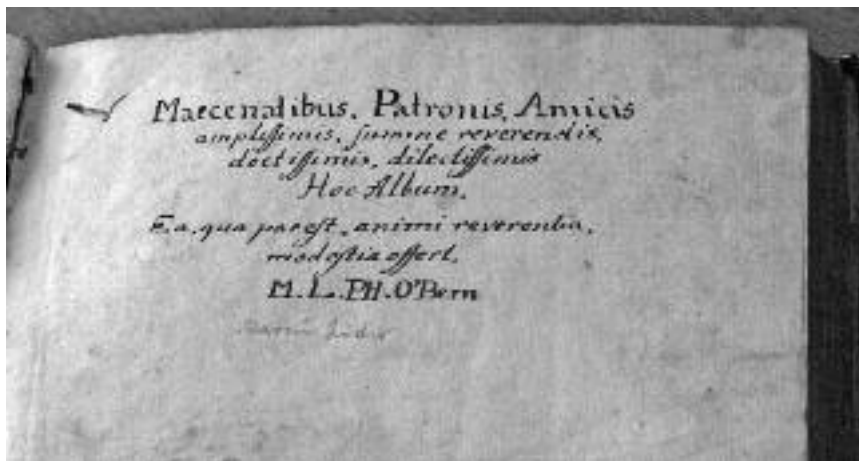 Maecenatibus, Patronis, Amicis
amplissimis, summe reverendis,
doctissimis, dilectissimis
Hoc Album,
Ea, qua par est, animi reverentia,
modestia offert,
M. L. PH. O'Bern